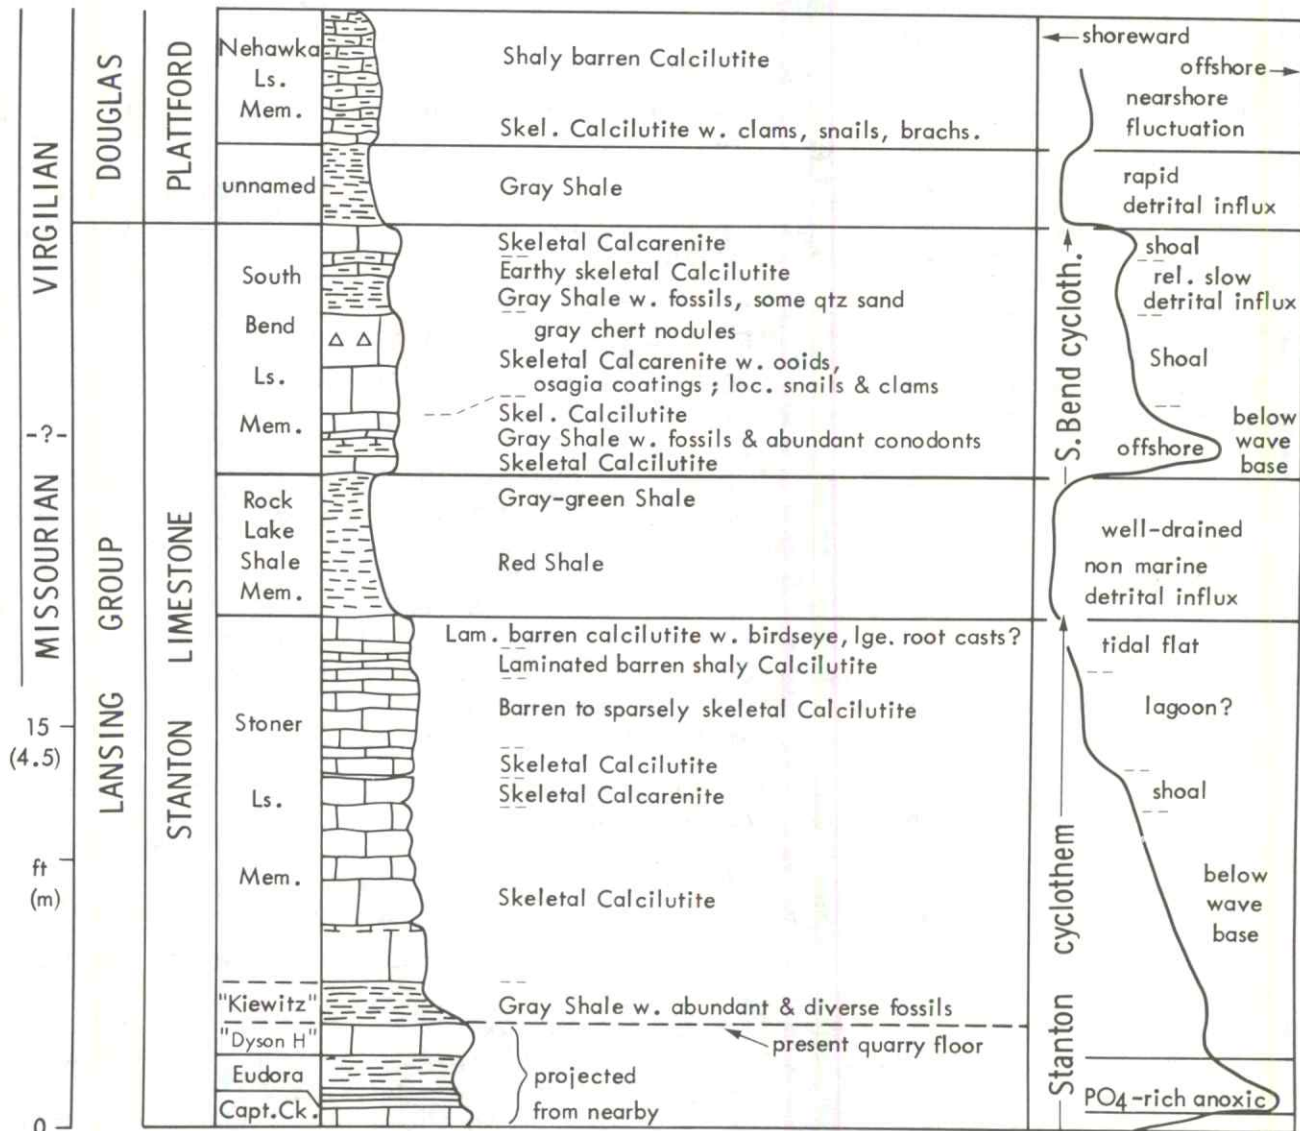 VIRGILIAN
-?-
MISSOURIAN
15
(4.5)
ft
(m)
0
DOUGLAS
LANSING GROUP
PLATTFORD
STANTON LIMESTONE
Nehawka
Ls.
Mem.
unnamed
South
Bend
Ls.
Mem.
Rock
Lake
Shale
Mem.
Stoner
Ls.
Mem.
"Kiewitz"
"Dyson H"
Eudora
Capt.Ck.
Shaly barren Calcilutite
Skel. Calcilutite w. clams, snails, brachs.
Gray Shale
Skeletal Calcarenite
Earthy skeletal Calcilutite
Gray Shale w. fossils, some qtz sand
gray chert nodules
Skeletal Calcarenite w. ooids,
osagia coatings ; loc. snails & clams
Skel. Calcilutite
Gray Shale w. fossils & abundant conodonts
Skeletal Calcilutite
Gray-green Shale
Red Shale
Lam. barren calcilutite w. birdseye, lge. root casts?
Laminated barren shaly Calcilutite
Barren to sparsely skeletal Calcilutite
Skeletal Calcilutite
Skeletal Calcarenite
Skeletal Calcilutite
Gray Shale w. abundant & diverse fossils
present quarry floor
projected
from nearby
shoreward
offshore
nearshore
fluctuation
rapid
detrital influx
S. Bend cycloth.
shoal
rel. slow
detrital influx
Shoal
offshore
below
wave
base
well-drained
non marine
detrital influx
Stanton cyclothem
tidal flat
lagoon?
shoal
below
wave
base
PO4-rich anoxic